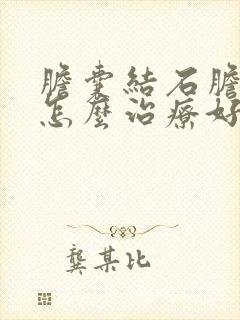 膽囊結石膽
怎麼治療好
龔某比